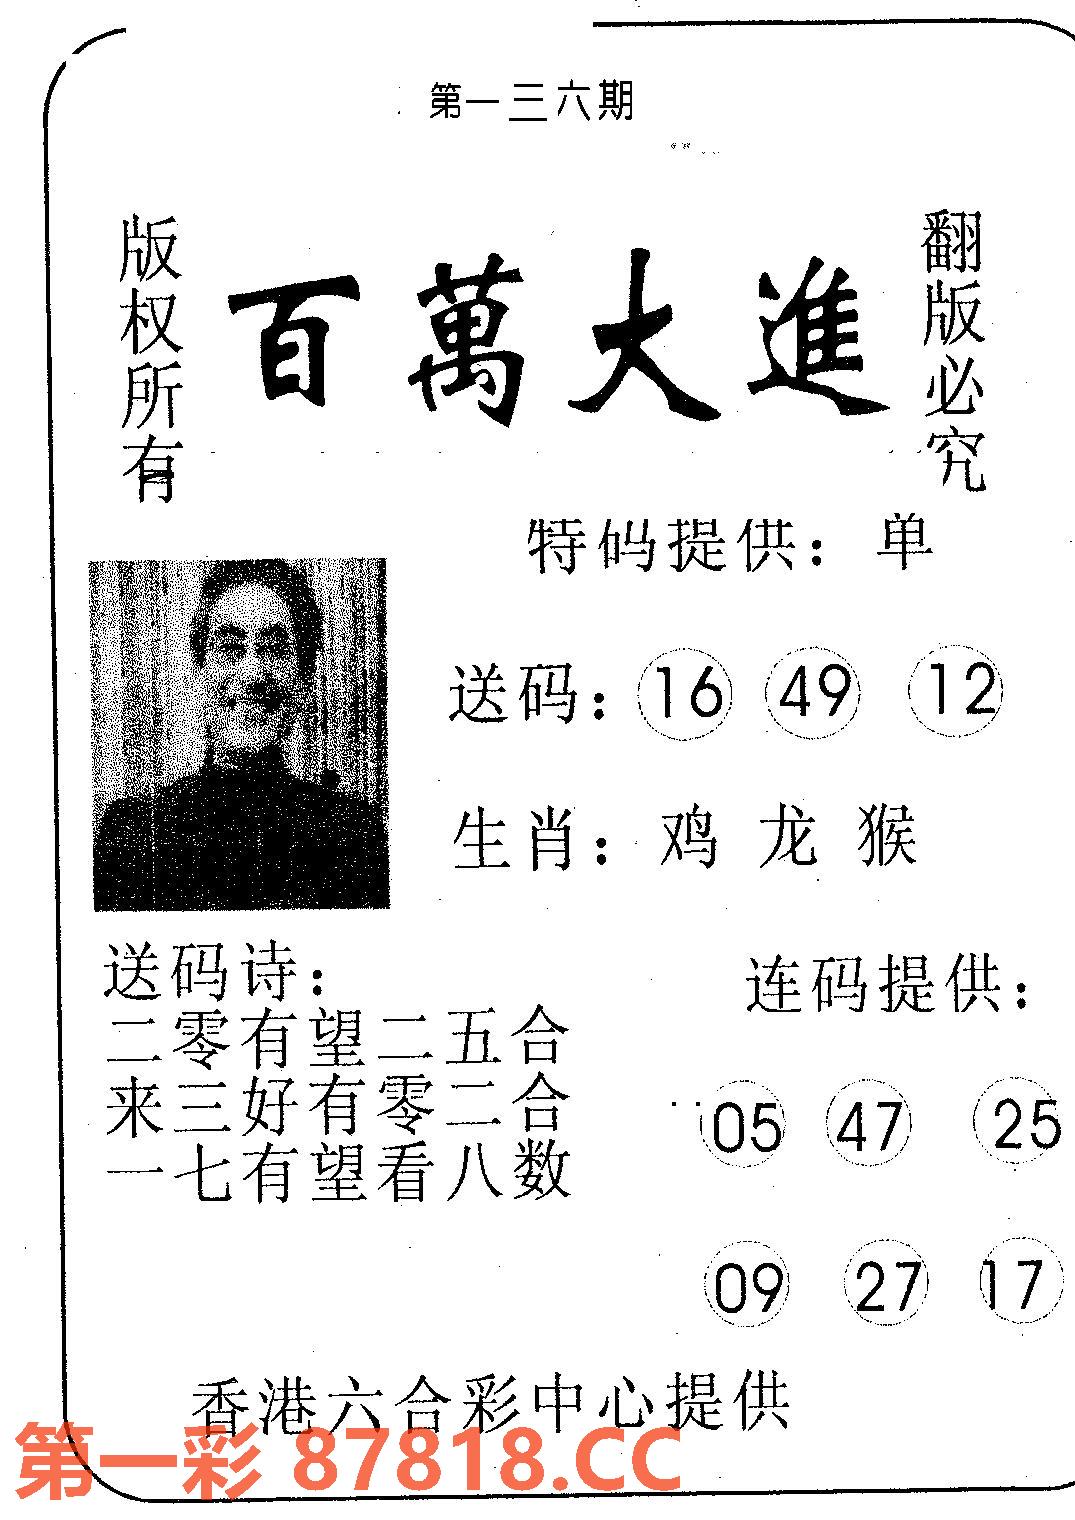 第一三六期
版权所有
百萬大進
翻版必究
特码提供：单
送码：16 49 12
生肖：鸡 龙 猴
送码诗：
二零有望二五合
来三好有零二合
一七有望看八数
连码提供：
05 47 25
09 27 17
香港六合彩中心提供
第一彩 87818.CC